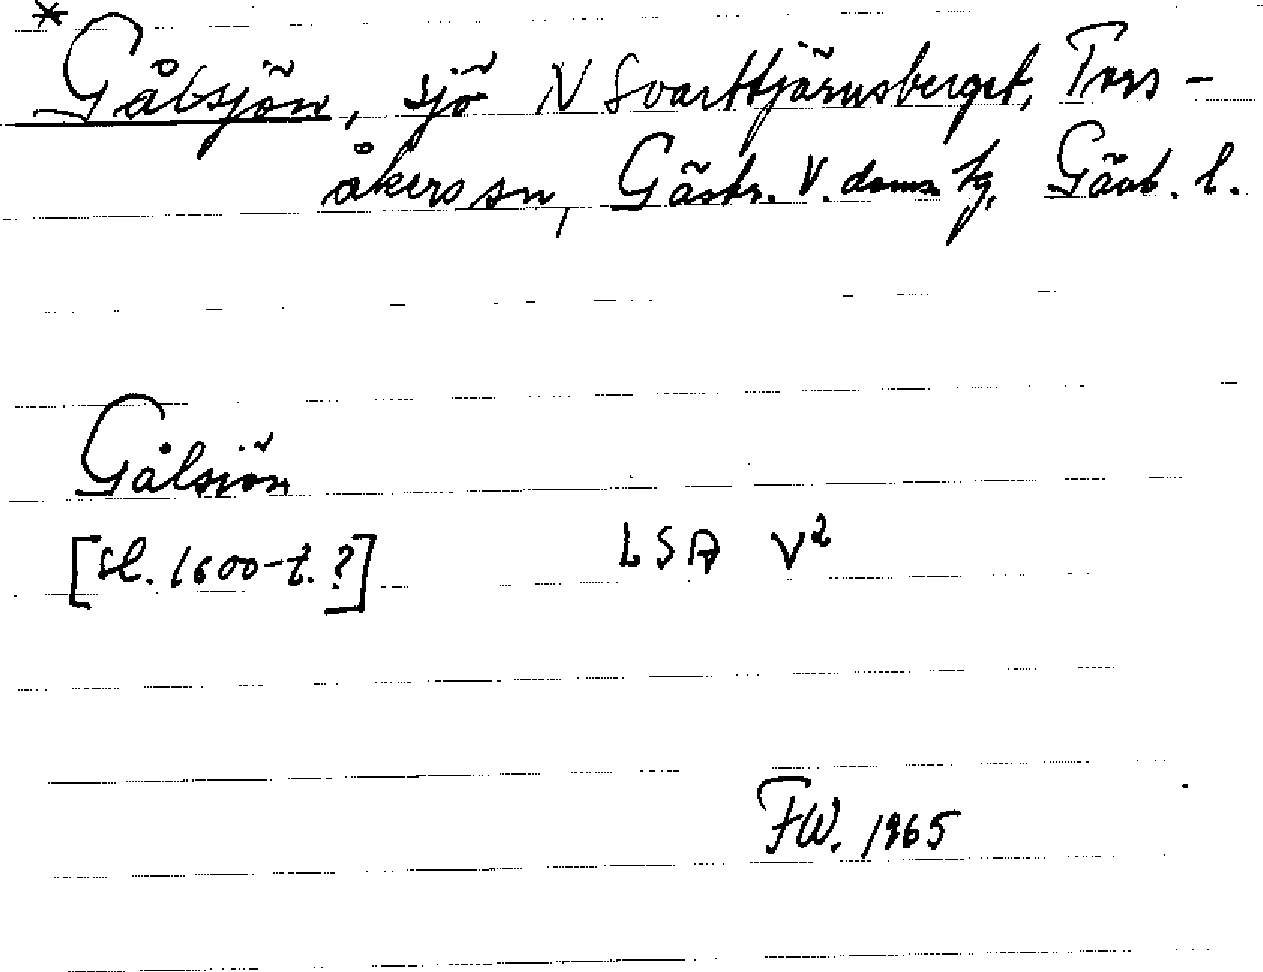 *Gålsjön, sjö N Svarttjärnsberget, Tors-
åkers sn, Gästr. V. doms. tg, Gävb. l.
Gålsiön
[sl. 1600-t.?] LSA V²
FW. 1965